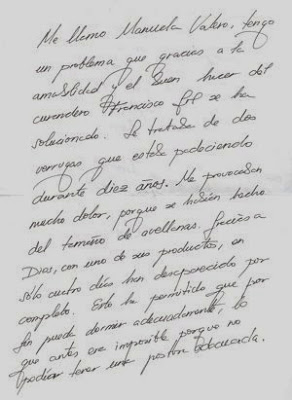 Me llamo Manuela Valero, tengo
un problema que gracias a la
amabilidad y el buen hacer del
curandero Francisco Gil se ha
solucionado. Se trataba de dos
verrugas que estaba padeciendo
durante diez años. Me provocaban
mucho dolor, porque se habían hecho
del tamaño de avellanas. Gracias a
Dios, con uno de sus productos, en
sólo cuatro días han desaparecido por
completo. Esto ha permitido que por
fin pueda dormir adecuadamente, lo
que antes era imposible porque no
podía tener una postura adecuada.